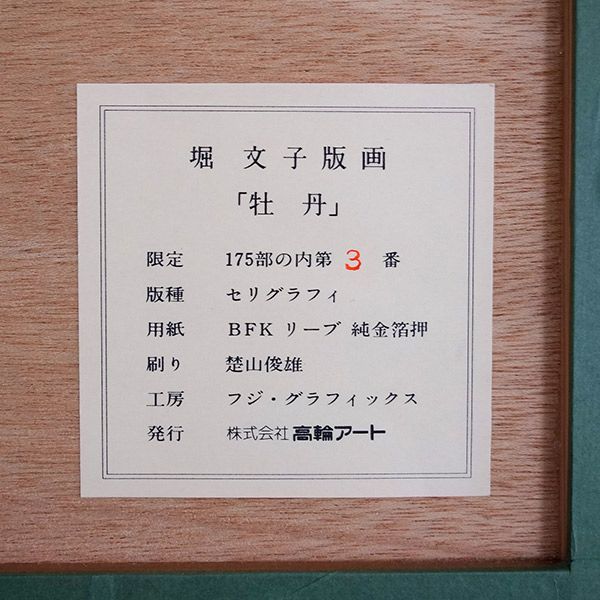 堀 文子版画
「牡 丹」
限定 175部の内第 3 番
版種 セリグラフィ
用紙 BFK リーブ 純金箔押
刷り 楚山俊雄
工房 フジ・グラフィックス
発行 株式会社 高輪アート